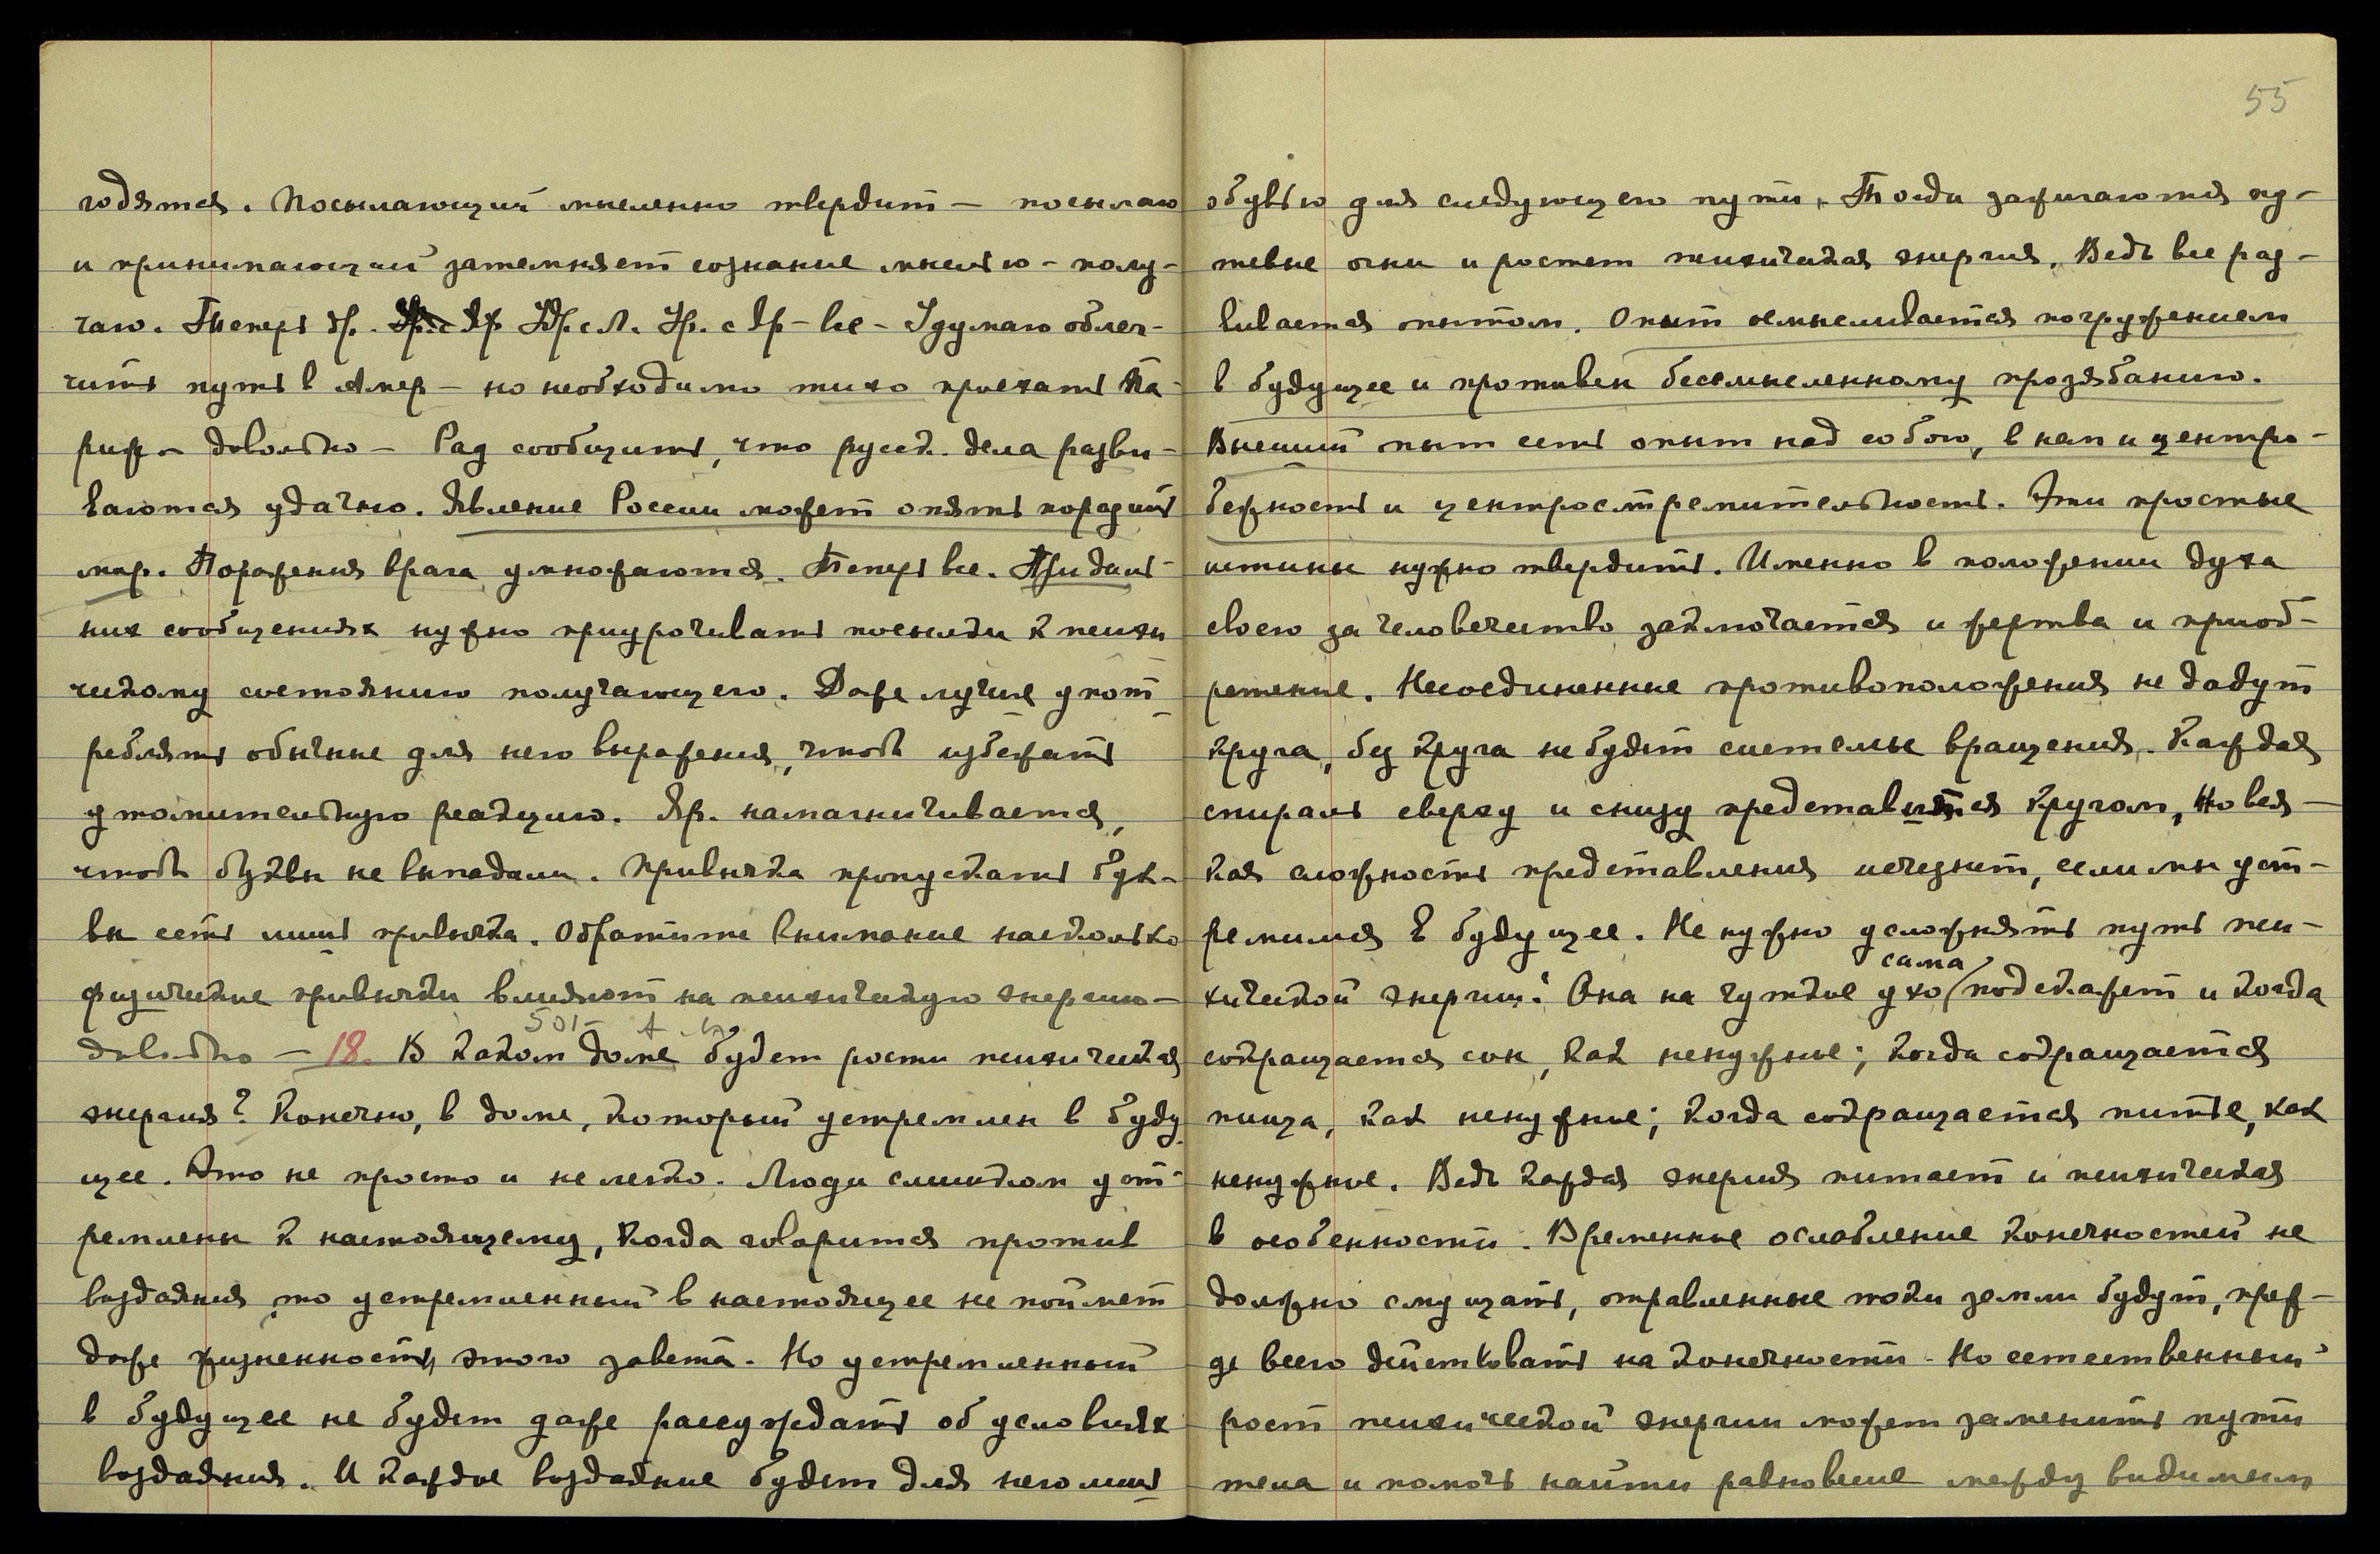 годятся. Посылающий мысленно твердит — посылаю
и принимающий затемняет сознание мыслью — полу-
чаю. Теперь др. Ур. с Л. Ур. с Яр — все — Удумаю облег-
чить путь в Амер — но необходимо тихо проехать Па-
риж — довольно — Рад сообщить, что русск. дела разви-
ваются удачно. Явление России может опять поразить
мир. Поражения врага умножаются. Теперь все. При даль-
них сообщениях нужно приурочивать посылки к психи
ческому состоянию получающего. Даже лучше упот-
реблять обычные для него выражения, чтоб избежать
утомительную реакцию. Яр. намагничивается,
чтоб буквы не выпадали. Привычка пропускать бук-
вы есть лишь привычка. Обратите внимание насколько
физические привычки влияют на психическую энергию —
довольно — 18. В каком доме будет расти психическая
501-
энергия? Конечно, в доме, который устремлен в буду
щее. Это не просто и не легко. Люди слишком уст-
ремлены к настоящему, когда говорится против
воздаяния, то устремленный в настоящее не поймет
даже жизненность этого завета. Но устремленный
в будущее не будет даже рассуждать об условиях
воздаяния. И каждое воздаяние будет для него лишь
55
обувью для следующего пути. Тогда зажигаются пу-
тевые огни и растет психическая энергия. Ведь все раз-
вивается опытом. Опыт осмысливается погружением
в будущее и противен бессмысленному прозябанию.
Высший опыт есть опыт над собою, в нем и центро-
бежность и центростремительность. Эти простые
истины нужно твердить. Именно в положении духа
своего за человечество заключается и жертва и приоб-
ретение. Несоединенные противоположения не дадут
круга, без круга не будет системы вращения. Каждая
спираль сверху и снизу представится кругом, но вся-
кая сложность представления исчезнет, если мы уст-
ремимся в будущее. Не нужно усложнять путь пси-
хической энергии. Она на чуткое ухо сама подскажет и когда
сокращается сон, как ненужное; когда сокращается
пища, как ненужное; когда сокращается питье, как
ненужное. Ведь каждая энергия питает и психическая
в особенности. Временное ослабление конечностей не
должно смущать, отравленные токи земли будут, преж-
де всего действовать на конечности. Но естественный
рост психической энергии может заменить пути
тела и помочь найти равновесие между видимым